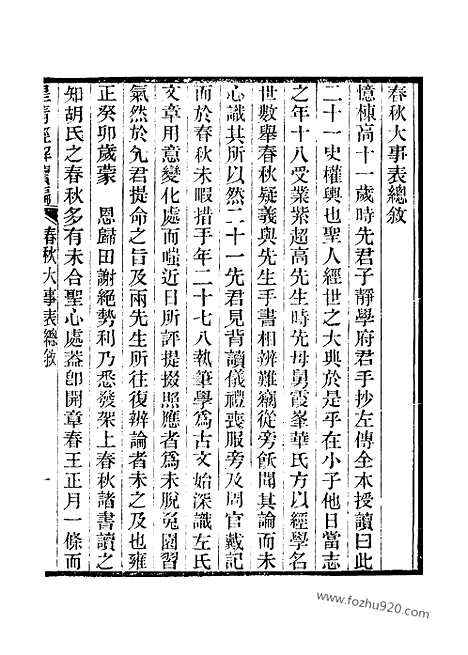 春秋大事表總敘
憶棟高十一歲時先君子靜學府君手抄左傳全本授讀曰此
二十一史權輿也聖人經世之大典於是乎在小子他日當志
之年十八受業紫超高先生時先母舅霞峯華氏方以經學名
世數舉春秋疑義與先生手書相辨難竊從旁飫聞其論而未
心識其所以然二十一先君見背讀儀禮喪服旁及周官戴記
而於春秋未暇措手年二十七八執筆學爲古文始深識左氏
文章用意變化處而嗤近日所評提掇照應者爲未脫兔園習
氣然於先君提命之旨及兩先生所往復辨論者未之及也雍
正癸卯歲蒙 恩歸田謝絕勢利乃悉發架上春秋諸書讀之
知胡氏之春秋多有未合聖心處葢卽開章春王正月一條而
皇清經解續編 春秋大事表總敘 一
www.fozhu920.com